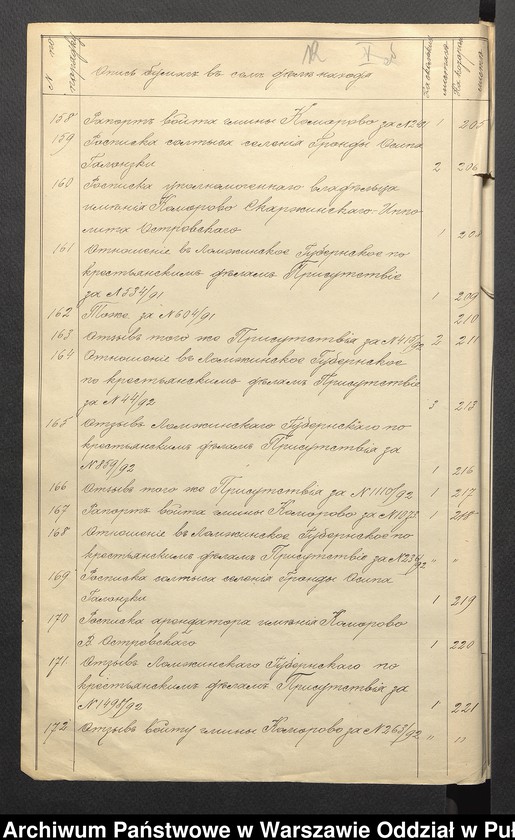 № по порядку
Опись бумагъ въ семъ дѣлѣ находя
На сколькихъ листахъ
158 Рапортъ войта гмины Коморово за №240 1 205
159 Росписка солтыса селенія Гронды Осипа
Галонзки 2 206
160 Росписка уполномоченнаго владѣльца
имѣнія Коморово Скаржинскаго-Иппо
лита Островскаго 1 208
161 Отношеніе въ Ломжинское Губернское по
крестьянскимъ дѣламъ Присутствіе
за №534/91 1 209
162 Тоже за №604/91 210
163 Отзывъ того же Присутствія за №419/92 2 211
164 Отношеніе въ Ломжинское Губернское
по крестьянскимъ дѣламъ Присутствіе
за №44/92 3 213
165 Отзывъ Ломжинскаго Губернскаго по
крестьянскимъ дѣламъ Присутствія за
№859/92 1 216
166 Отзывъ того же Присутствія за №1110/92 1 217
167 Рапортъ войта гмины Коморово за №1073 1 218
168 Отношеніе въ Ломжинское Губернское по
крестьянскимъ дѣламъ Присутствіе за №236/92 " "
169 Росписка солтыса селенія Гронды Осипа
Галонзки 1 219
170 Росписка арендатора имѣнія Коморово
В. Островскаго 1 220
171 Отзывъ Ломжинскаго Губернскаго по
крестьянскимъ дѣламъ Присутствія за
№1498/92 1 221
172 Отзывъ войту гмины Коморово за №263/92 " "
Archiwum Państwowe w Warszawie Oddział w Puł